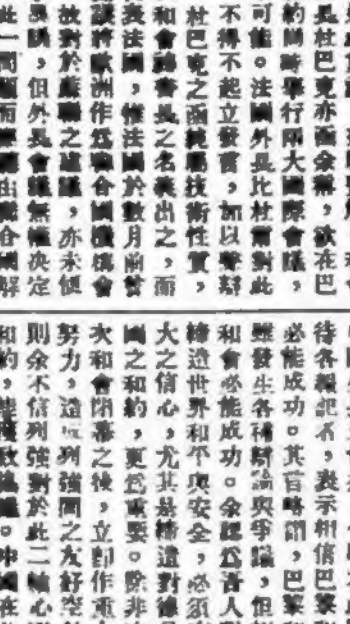 長杜巴克亦面余稱,欲在巴
約同時舉行兩大國際會議,
可能。法國外長比杜爾對此
不得不起立發言,加以聲辯
杜巴克之函純屬技術性質,
和會秘書長之名義出之,而
表法國,惟法國於數月前曾
議將歐洲作為聯合國機構會
故對於蘇聯之建議,亦未便
異議,但外長會議無權決定
此一問題而應由聯合國解
待各報記者,表示相信巴黎
必能成功。其言略謂,巴黎和
雖發生各種辯論與爭議,但
和會必能成功。余認為吾人
締造世界和平與安全,必須
大之信心,尤其是締造對德
國之和約,更為重要。除非
次和會閉幕之後,立即作重
努力,造成列強間之友好空
則余不信列強對於此二軸心
和約,能獲致協議。中國在